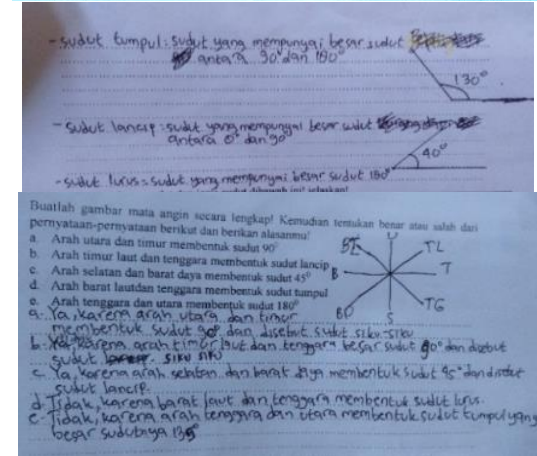 - Sudut tumpul : Sudut yang mempunyai besar sudut
antara 90° dan 180°
130°
- Sudut lancip : sudut yang mempunyai besar sudut
antara 0° dan 90°
40°
- Sudut lurus = sudut yang mempunyai besar sudut 180°
Buatlah gambar mata angin secara lengkap! Kemudian tentukan benar atau salah dari
pernyataan-pernyataan berikut dan berikan alasanmu!
a. Arah utara dan timur membentuk sudut 90°
b. Arah timur laut dan tenggara membentuk sudut lancip
c. Arah selatan dan barat daya membentuk sudut 45°
d. Arah barat lautdan tenggara membentuk sudut tumpul
e. Arah tenggara dan utara membentuk sudut 180°
U
BL
TL
B
T
BD
S
TG
a. Ya, karena arah utara dan timur
membentuk sudut 90° dan disebut sudut siku-siku
b. karena arah timur laut dan tenggara besar sudut 90° dan disebut
sudut siku siku
c. Ya, karena arah selatan dan barat daya membentuk sudut 45° dan disebut
sudut lancip.
d. Tidak, karena barat laut dan tenggara membentuk sudut lurus.
e. Tidak, karena arah tenggara dan utara membentuk sudut tumpul yang
besar sudutnya 135°